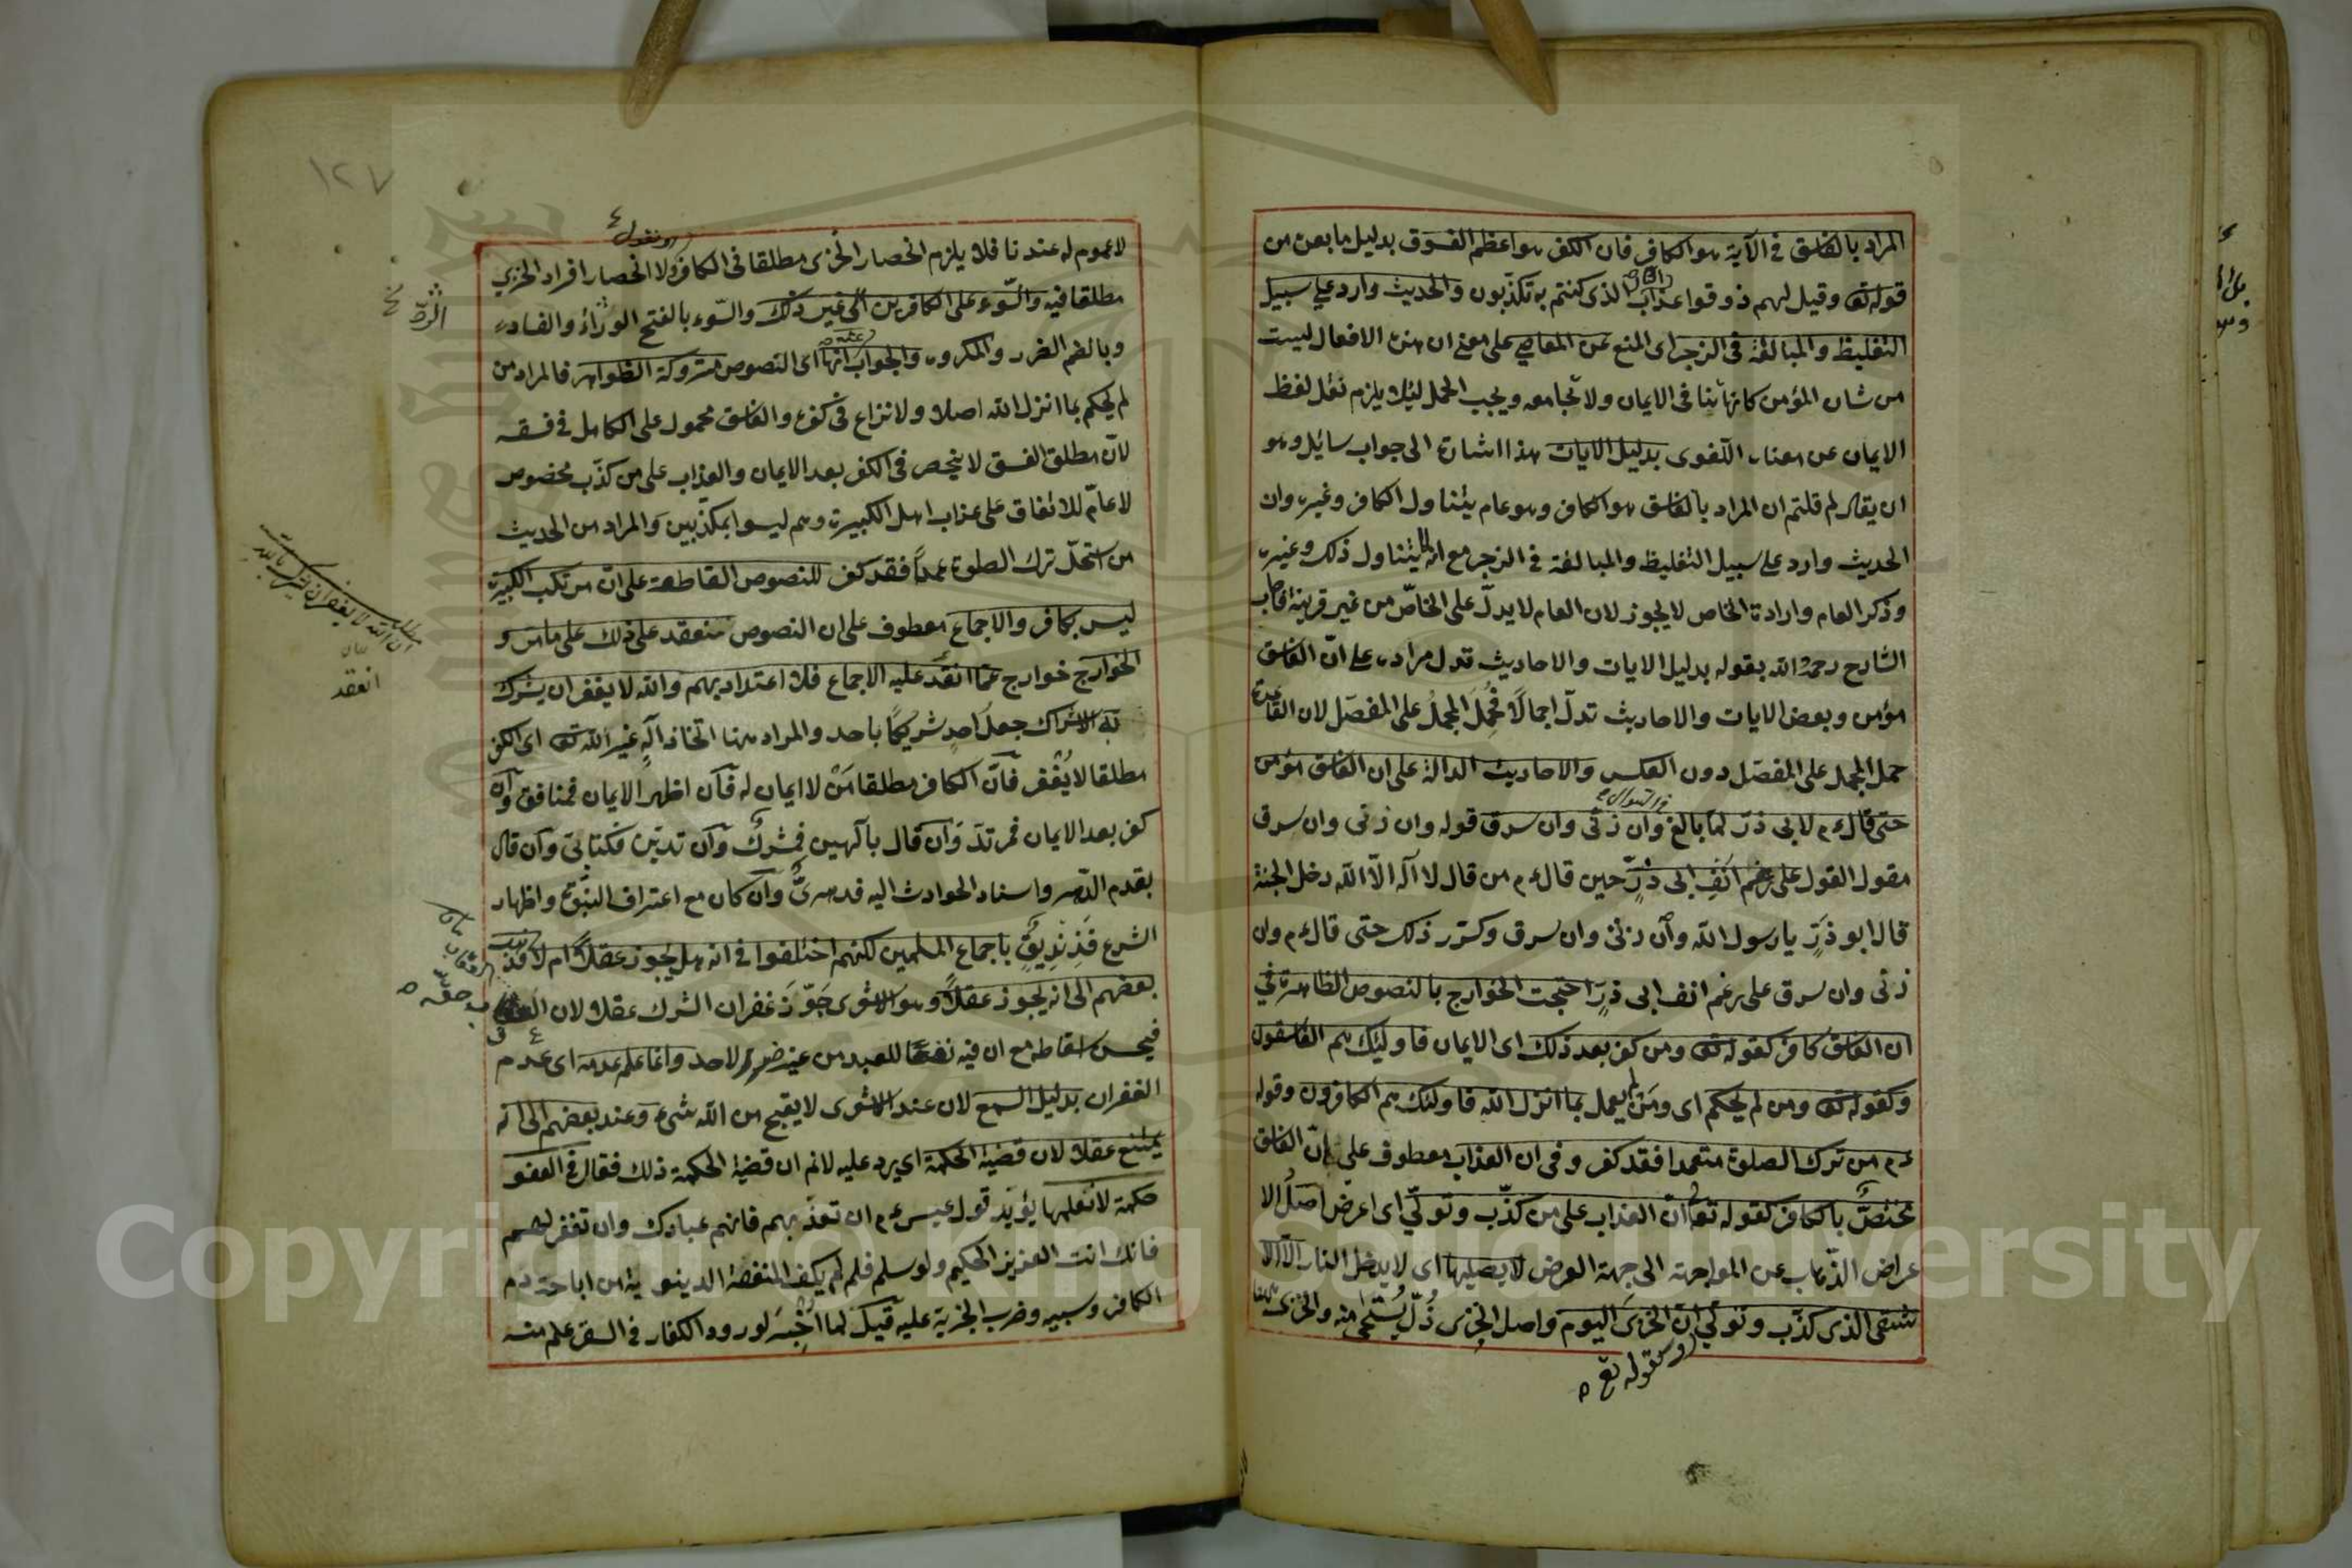 المراد بالفاسق في الآية هو الكافر فان الكفر هو اعظم الفسوق بدليل ما بعده من
قوله تع وقيل لهم ذوقوا عذاب النار الذى كنتم به تكذبون والحديث وارد على سبيل
التغليظ والمبالغة فى الزجر اى المنع عن المعاصى على معنى ان هذه الافعال ليست
من شان المؤمن كانها تنافى الايمان ولا تجامعه ويجب الحمل لئلا يلزم نقل لفظ
الايمان عن معناه اللغوى بدليل الايات هذا اشارة الى جواب سائل وهو
ان يقال لم قلتم ان المراد بالفاسق هو الكافر وهو عام يتناول الكافر وغيره وان
الحديث وارد على سبيل التغليظ والمبالغة في الزجر مع انه يتناول ذلك وغيره
وذكر العام وارادة الخاص لا يجوز لان العام لا يدل على الخاص من غير قرينة فاجاب
الشارح رحمه الله بقوله بدليل الايات والاحاديث تدل مراده على ان الفاسق
مؤمن وبعض الايات والاحاديث تدل اجمالا فحمل المجمل على المفصل لان القاعدة
حمل المجمل على المفصل دون العكس والاحاديث الدالة على ان الفاسق مؤمن
حتى قال ءم لابى ذر لما بالغ فى السوال وان زنى وان سرق قوله وان زنى وان سرق
مقول القول على رغم انف ابى ذر حين قال ءم من قال لا اله الا الله دخل الجنة
قال ابو ذر يا رسول الله وان زنى وان سرق وكرر ذلك حتى قال ءم وان
زنى وان سرق على رغم انف ابى ذر احتجت الخوارج بالنصوص الظاهرة في
ان الفاسق كافر كقوله تع ومن كفر بعد ذلك اى الايمان فاوليك هم الفاسقون
وكقوله تع ومن لم يحكم اى ومن لم يعمل بما انزل الله فاوليك هم الكافرون وقوله
ءم من ترك الصلوة متعمدا فقد كفر وفى ان العذاب معطوف على ان الفاسق
مختص بالكافر كقوله تع ان العذاب على من كذب وتولى اى اعرض اصل الا
عراض الذهاب عن المواجهة الى جهة العرض لا يصليها اى لا يدخل النار الا الا
شقى الذى كذب وتولى ان الخزى اليوم واصل الخزى ذل يستحى منه والخزى
وكقوله تع
١٢٧
لا عموم له عندنا فلا يلزم انحصار الخزى مطلقا فى الكافر ولا انحصار افراد الخزي
او نقول
مطلقا فيه والسوء على الكافرين الى غير ذلك والسوء بالفتح الرداءة والفساد
وبالضم الضرر والمكروه والجواب انها اى النصوص متروكة الظواهر فالمراد من
لم يحكم بما انزل الله اصلا ولا نزاع فى كفره والفاسق محمول على الكامل فى فسقه
لان مطلق الفسق لا ينحصر فى الكفر بعد الايمان والعذاب على من كذب مخصوص
لا عام للاتفاق على عذاب اهل الكبيرة وهم ليسوا بمكذبين والمراد من الحديث
من استحل ترك الصلوة عمدا فقد كفر للنصوص القاطعة على ان مرتكب الكبيرة
ليس بكافر والاجماع معطوف على ان النصوص منعقد على ذلك على ما مر و
الخوارج خوارج عما انعقد عليه الاجماع فلا اعتداد بهم والله لا يغفر ان يشرك
به الاشراك جعل احد شريكا باحد والمراد ههنا اتخاذ اله غير الله تع اى الكفر
مطلقا لا يغفر فان الكافر مطلقا من لا ايمان له فان اظهر الايمان فمنافق وان
كفر بعد الايمان فمرتد وان قال بالهين فمشرك وان تدين فكتابى وان قال
بقدم الدهر واسناد الحوادث اليه فدهرى وان كان مع اعتراف النبوة واظهار
الشرع فزنديق باجماع المسلمين لكنهم اختلفوا فى انه هل يجوز عقلا ام لا فذهب
بعضهم الى انه يجوز عقلا وهو الاشعرى جوز غفران الشرك عقلا لان العقاب
فيحسن اسقاطه مع ان فيه نفعا للعبد من غير ضرر لاحد وانما علم عدمه اى عدم
الغفران بدليل السمع لان عند الاشعرى لا يقبح من الله شىء وعند بعضهم الى انه
يمتنع عقلا لان قضية الحكمة اى يرد عليه لانم ان قضية الحكمة ذلك فقال فى العفو
حكمة لا نعلمها يؤيد قول عيسى ءم ان تعذبهم فانهم عبادك وان تغفر لهم
فانك انت العزيز الحكيم ولو سلم فلم لم يكف المنفعة الدينوية من اباحة دم
الكافر وسبيه وضرب الجزية عليه قيل لما اخبر لورود الكفار فى السقر علم منه
مطلب
ان الله لا يغفر ان يشرك به
بيان
انعقد
حقه